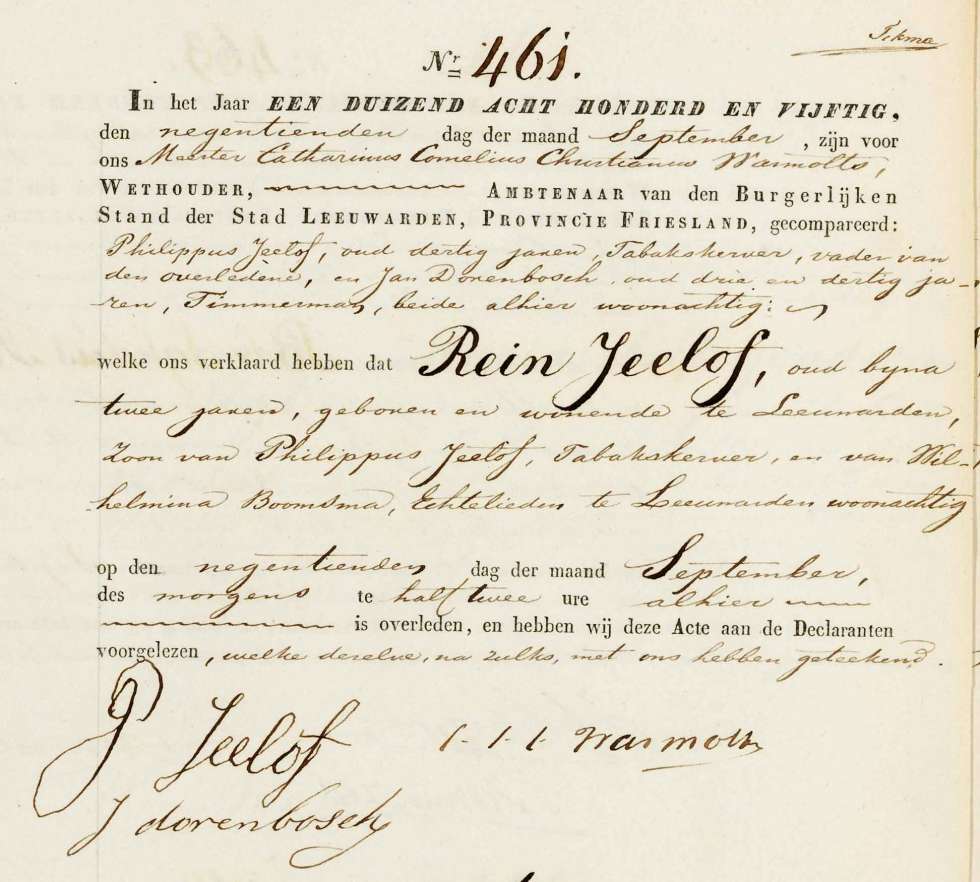 Tekma
Nr 461.
In het Jaar EEN DUIZEND ACHT HONDERD EN VIJFTIG,
den negentienden dag der maand September, zijn voor
ons Meester Catharinus Cornelius Christianus Warmolts,
WETHOUDER, AMBTENAAR van den Burgerlijken
Stand der Stad LEEUWARDEN, PROVINCIE FRIESLAND, gecompareerd:
Philippus Jeelof, oud dertig jaren, Tabakskerver, vader van
den overledene, en Jan Dorenbosch, oud drie en dertig ja-
ren, Timmerman, beide alhier woonachtig:
welke ons verklaard hebben dat Rein Jeelof, oud byna
twee jaren, geboren en wonende te Leeuwarden,
Zoon van Philippus Jeelof, Tabakskerver, en van Wil-
helmina Boomsma, Echtelieden te Leeuwarden woonachtig
op den negentienden dag der maand September,
des morgens te half twee ure alhier
is overleden, en hebben wij deze Acte aan de Declaranten
voorgelezen, welke dezelve, na zulks, met ons hebben geteekend.
P Jeelof
C. C. C. Warmolts
J dorenbosch